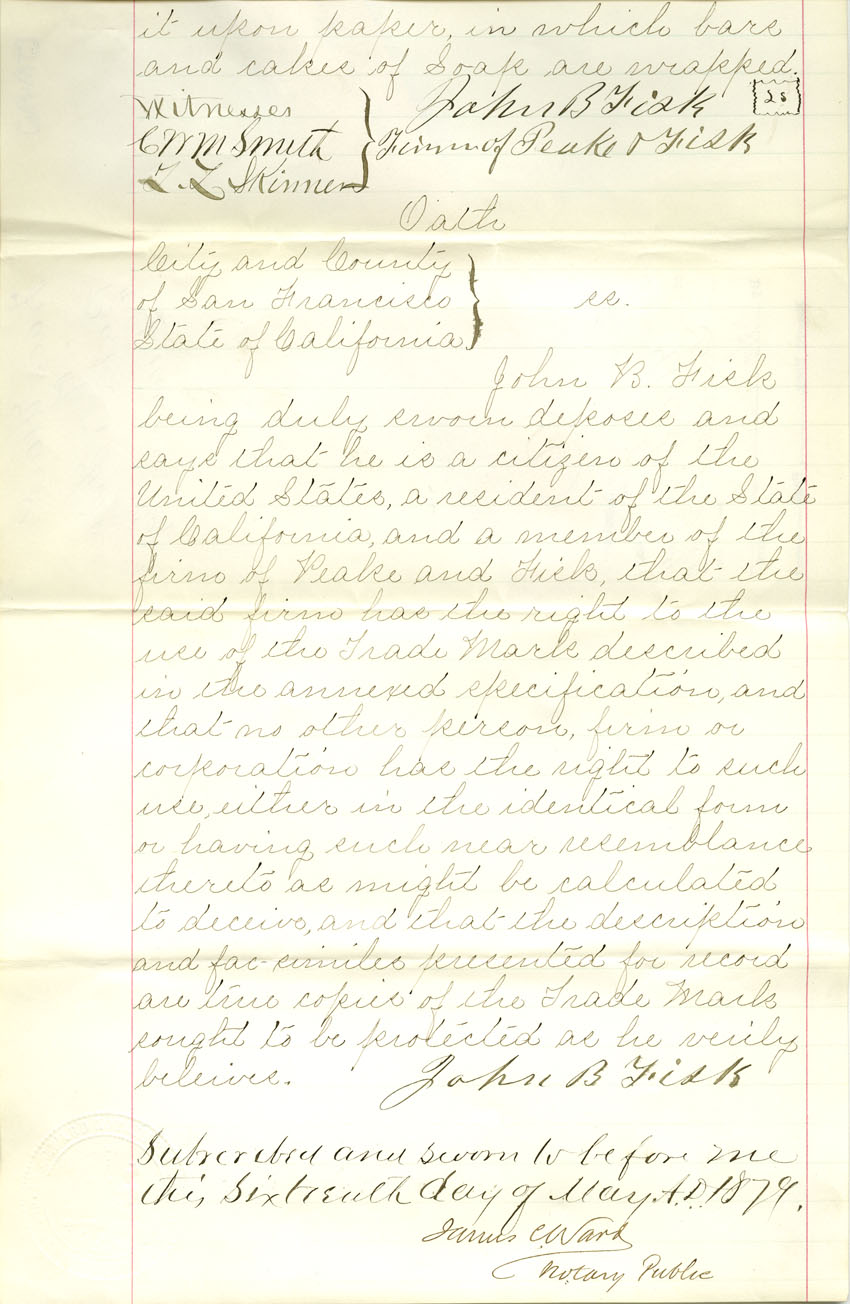 it upon paper, in which bars
and cakes of Soap are wrapped.
Witnesses John B Fisk LS
C W M Smith Firm of Peake & Fisk
L. L Skinner
Oath
City and County
of San Francisco ss.
State of California
John B. Fisk
being duly sworn deposes and
says that he is a citizen of the
United States, a resident of the State
of California, and a member of the
firm of Peake and Fisk, that the
said firm has the right to the
use of the Trade Mark described
in the annexed specification, and
that no other person, firm or
corporation has the right to such
use, either in the identical form
or having such near resemblance
thereto as might be calculated
to deceive, and that the description
and fac-similes presented for record
are true copies of the Trade Mark
sought to be protected as he verily
beleives.
John B Fisk
Subscribed and sworn to before me
this Sixteenth day of May A.D. 1879.
James C. Ward
Notary Public